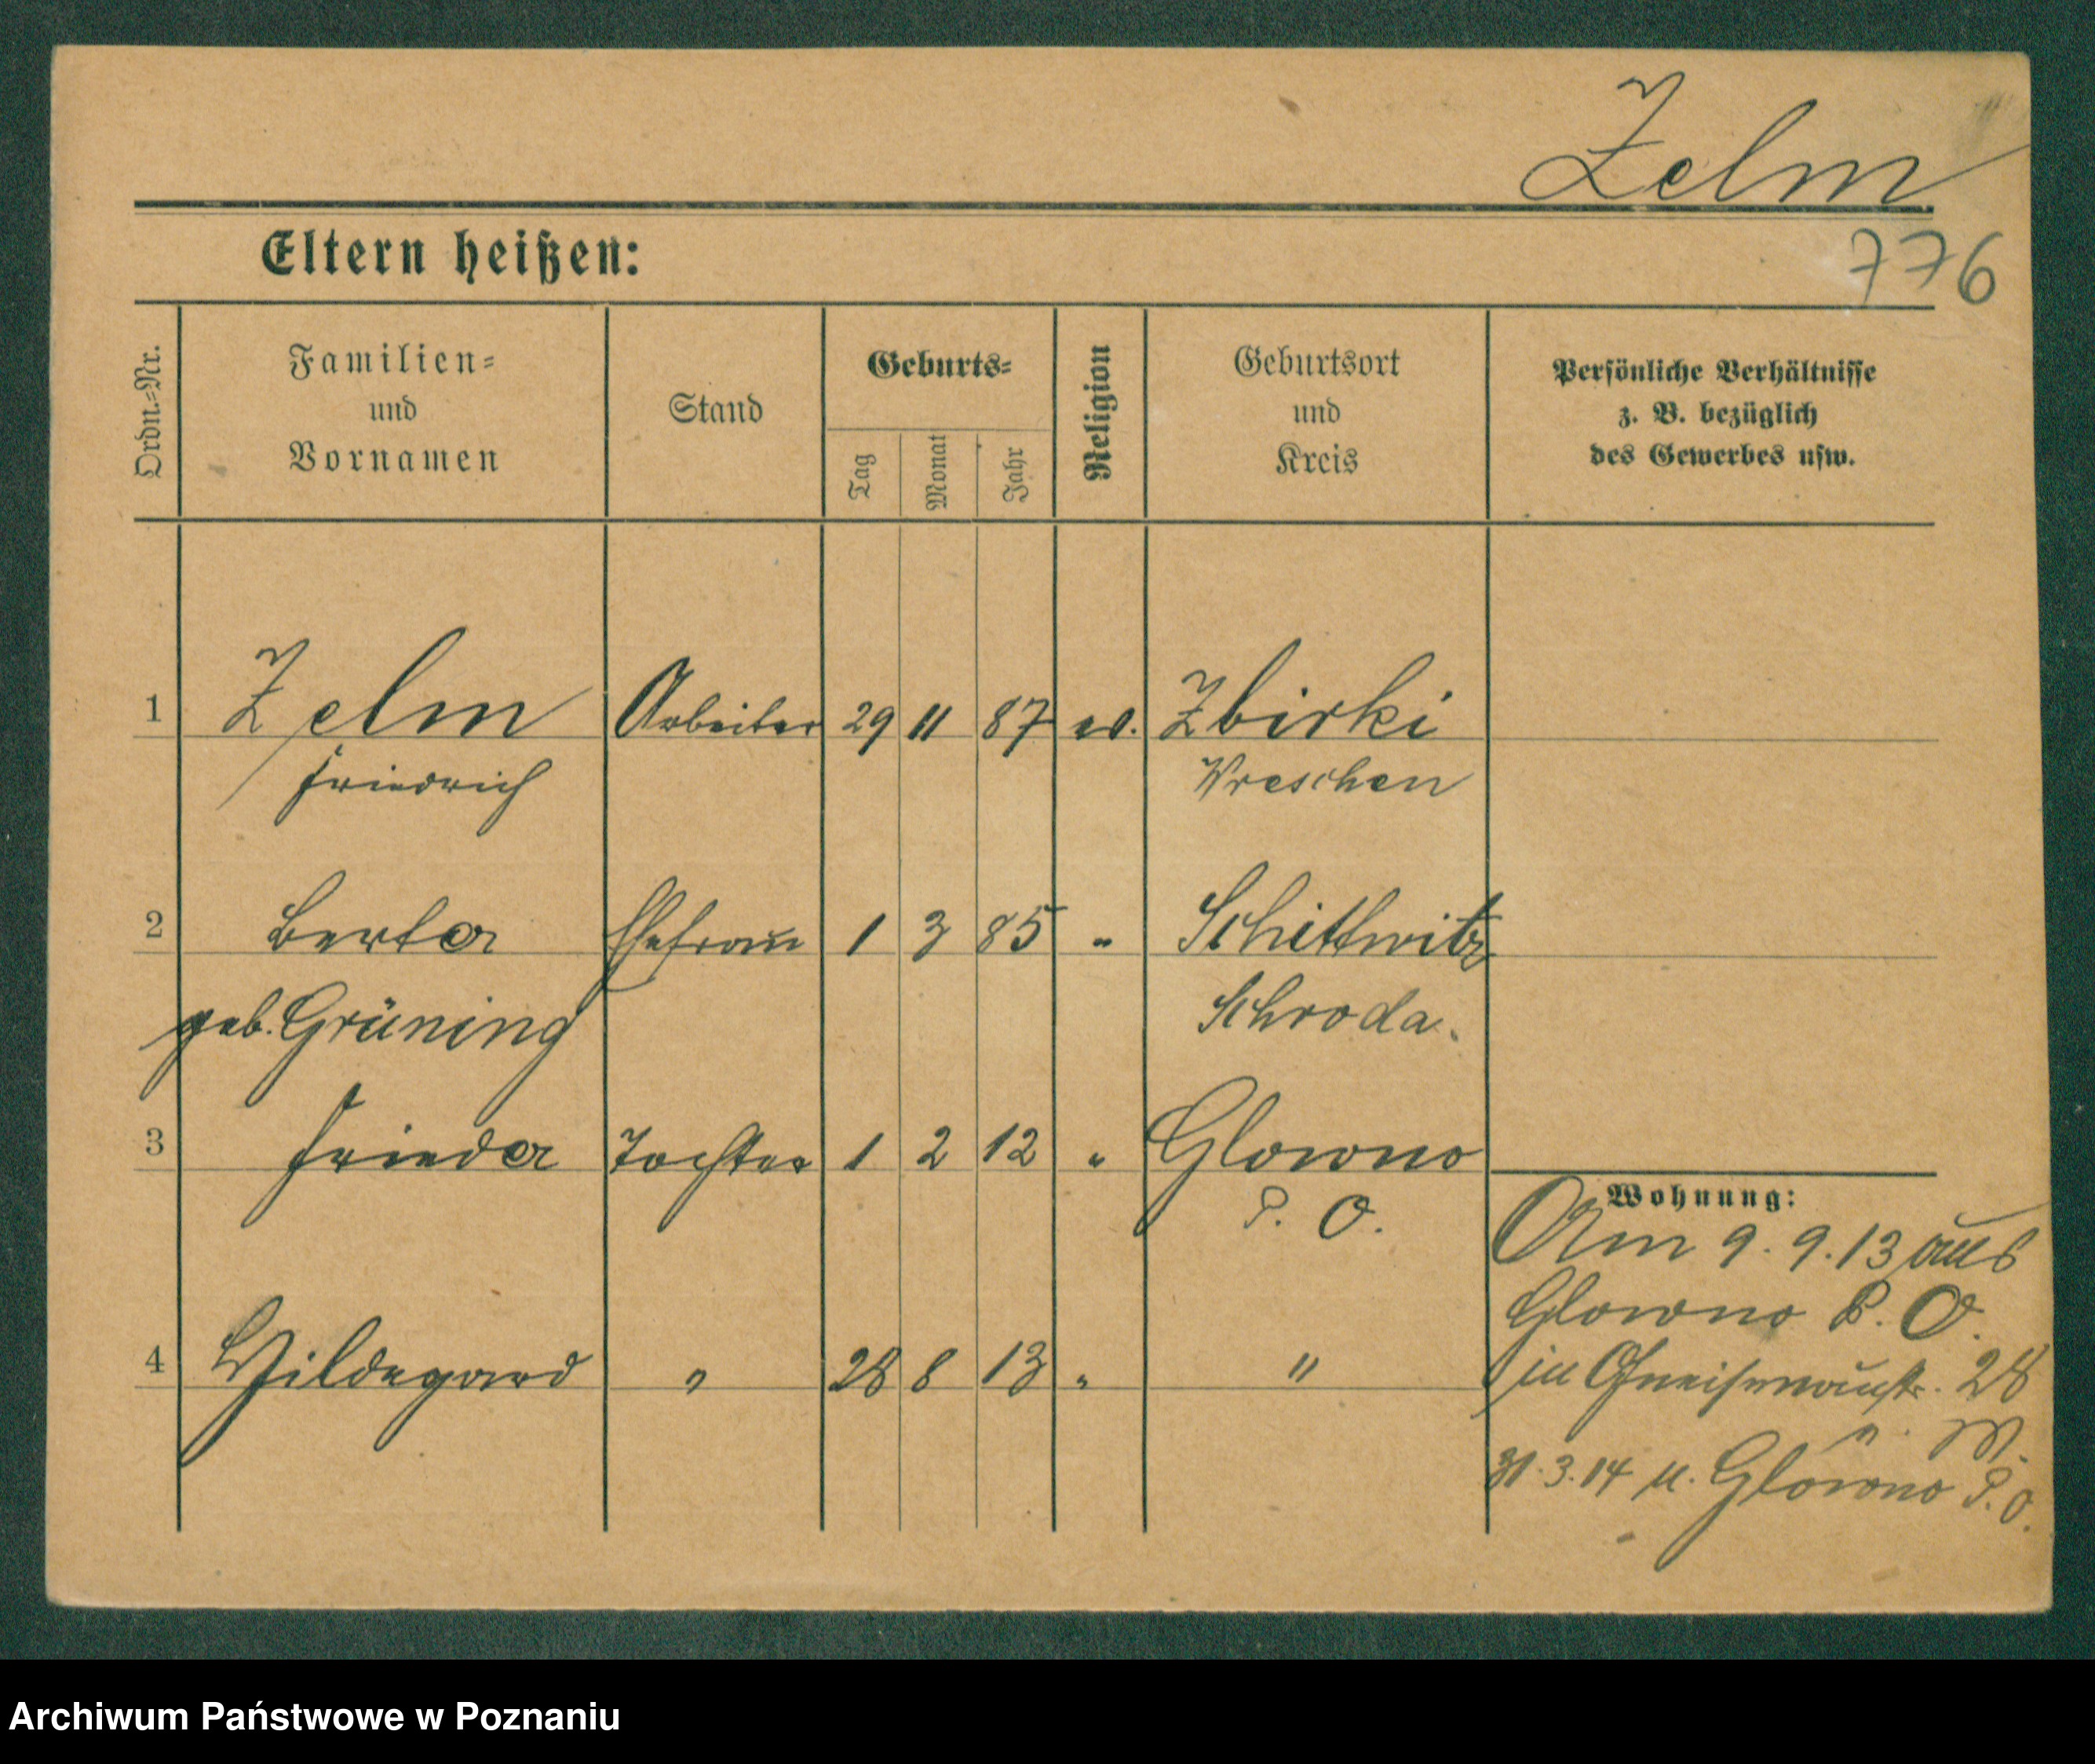 Zelm
Eltern heißen:
776
Ordn.-Nr.
Familien-
und
Vornamen
Stand
Geburts-
Tag
Monat
Jahr
Religion
Geburtsort
und
Kreis
Persönliche Verhältnisse
z. B. bezüglich
des Gewerbes usw.
1 Zelm Arbeiter 29 11 87 ev. Zbirki
Friedrich Wreschen
2 Berta Ehefrau 1 3 85 " Schittwitz
geb. Grüning Schroda.
3 Frieda Tochter 1 2 12 " Glowno
P. O.
Wohnung:
Am 9. 9. 13 aus
Glowno P. O.
4 Hildegard " 28 8 13 " "
in Gneisenaustr. 28
31.3.14 n. Glowno P. O.
Archiwum Państwowe w Poznaniu